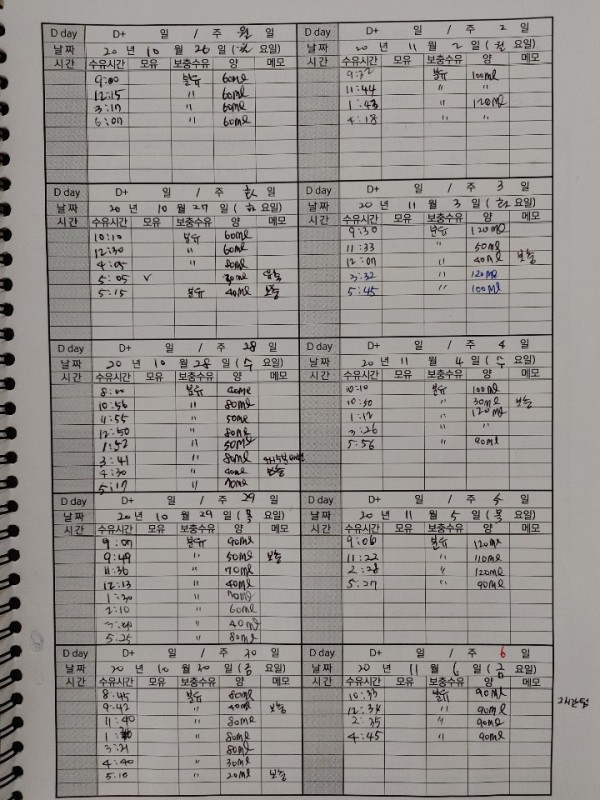 D day D+ 일 / 주 월 일
날짜 20 년 10 월 26 일 (월 요일)
시간 수유시간 모유 보충수유 양 메모
9:00 분유 60ml
12:15 " 60ml
3:17 " 60ml
6:07 " 60ml
D day D+ 일 / 주 화 일
날짜 20 년 10 월 27 일 (화 요일)
시간 수유시간 모유 보충수유 양 메모
10:10 분유 60ml
12:30 " 60ml
4:05 " 80ml
5:05 ✓ 30ml
5:15 분유 40ml 보충
D day D+ 일 / 주 28 일
날짜 20 년 10 월 28 일 (수 요일)
시간 수유시간 모유 보충수유 양 메모
8:00 분유 90ml
10:56 " 80ml
11:55 " 50ml
12:50 " 80ml
1:52 " 50ml
3:41 " 80ml
4:30 " 40ml 보충
5:17 " 70ml
D day D+ 일 / 주 29 일
날짜 20 년 10 월 29 일 (목 요일)
시간 수유시간 모유 보충수유 양 메모
9:07 분유 90ml
9:49 " 50ml 보충
11:36 " 70ml
12:13 " 40ml
1:30 " 70ml
2:10 " 60ml
" 40ml
5:25 " 80ml
D day D+ 일 / 주 30 일
날짜 20 년 10 월 30 일 (금 요일)
시간 수유시간 모유 보충수유 양 메모
8:45 분유 80ml
9:42 " 40ml 보충
11:40 " 80ml
" 80ml
3:21 80ml
4:40 " 30ml
5:10 " 20ml 보충
D day D+ 일 / 주 2 일
날짜 20 년 11 월 2 일 (월 요일)
시간 수유시간 모유 보충수유 양 메모
분유 100ml
11:44 " "
1:43 " 120ml
4:18 " "
D day D+ 일 / 주 3 일
날짜 20 년 11 월 3 일 (화 요일)
시간 수유시간 모유 보충수유 양 메모
9:30 분유 120ml
11:33 " 50ml
12:07 " 40ml 보충
3:32 " 120ml
5:45 " 100ml
D day D+ 일 / 주 4 일
날짜 20 년 11 월 4 일 (수 요일)
시간 수유시간 모유 보충수유 양 메모
10:10 분유 100ml
10:50 " 30ml 보충
1:12 " 120ml
3:26 " "
5:56 " 90ml
D day D+ 일 / 주 5 일
날짜 20 년 11 월 5 일 (목 요일)
시간 수유시간 모유 보충수유 양 메모
9:06 분유 120ml
11:22 " 110ml
2:28 " 120ml
5:27 " 90ml
D day D+ 일 / 주 6 일
날짜 20 년 11 월 6 일 (금 요일)
시간 수유시간 모유 보충수유 양 메모
10:33 분유 90ml
12:34 " 90ml
2:35 " 90ml
4:45 " 90ml
2시간텀